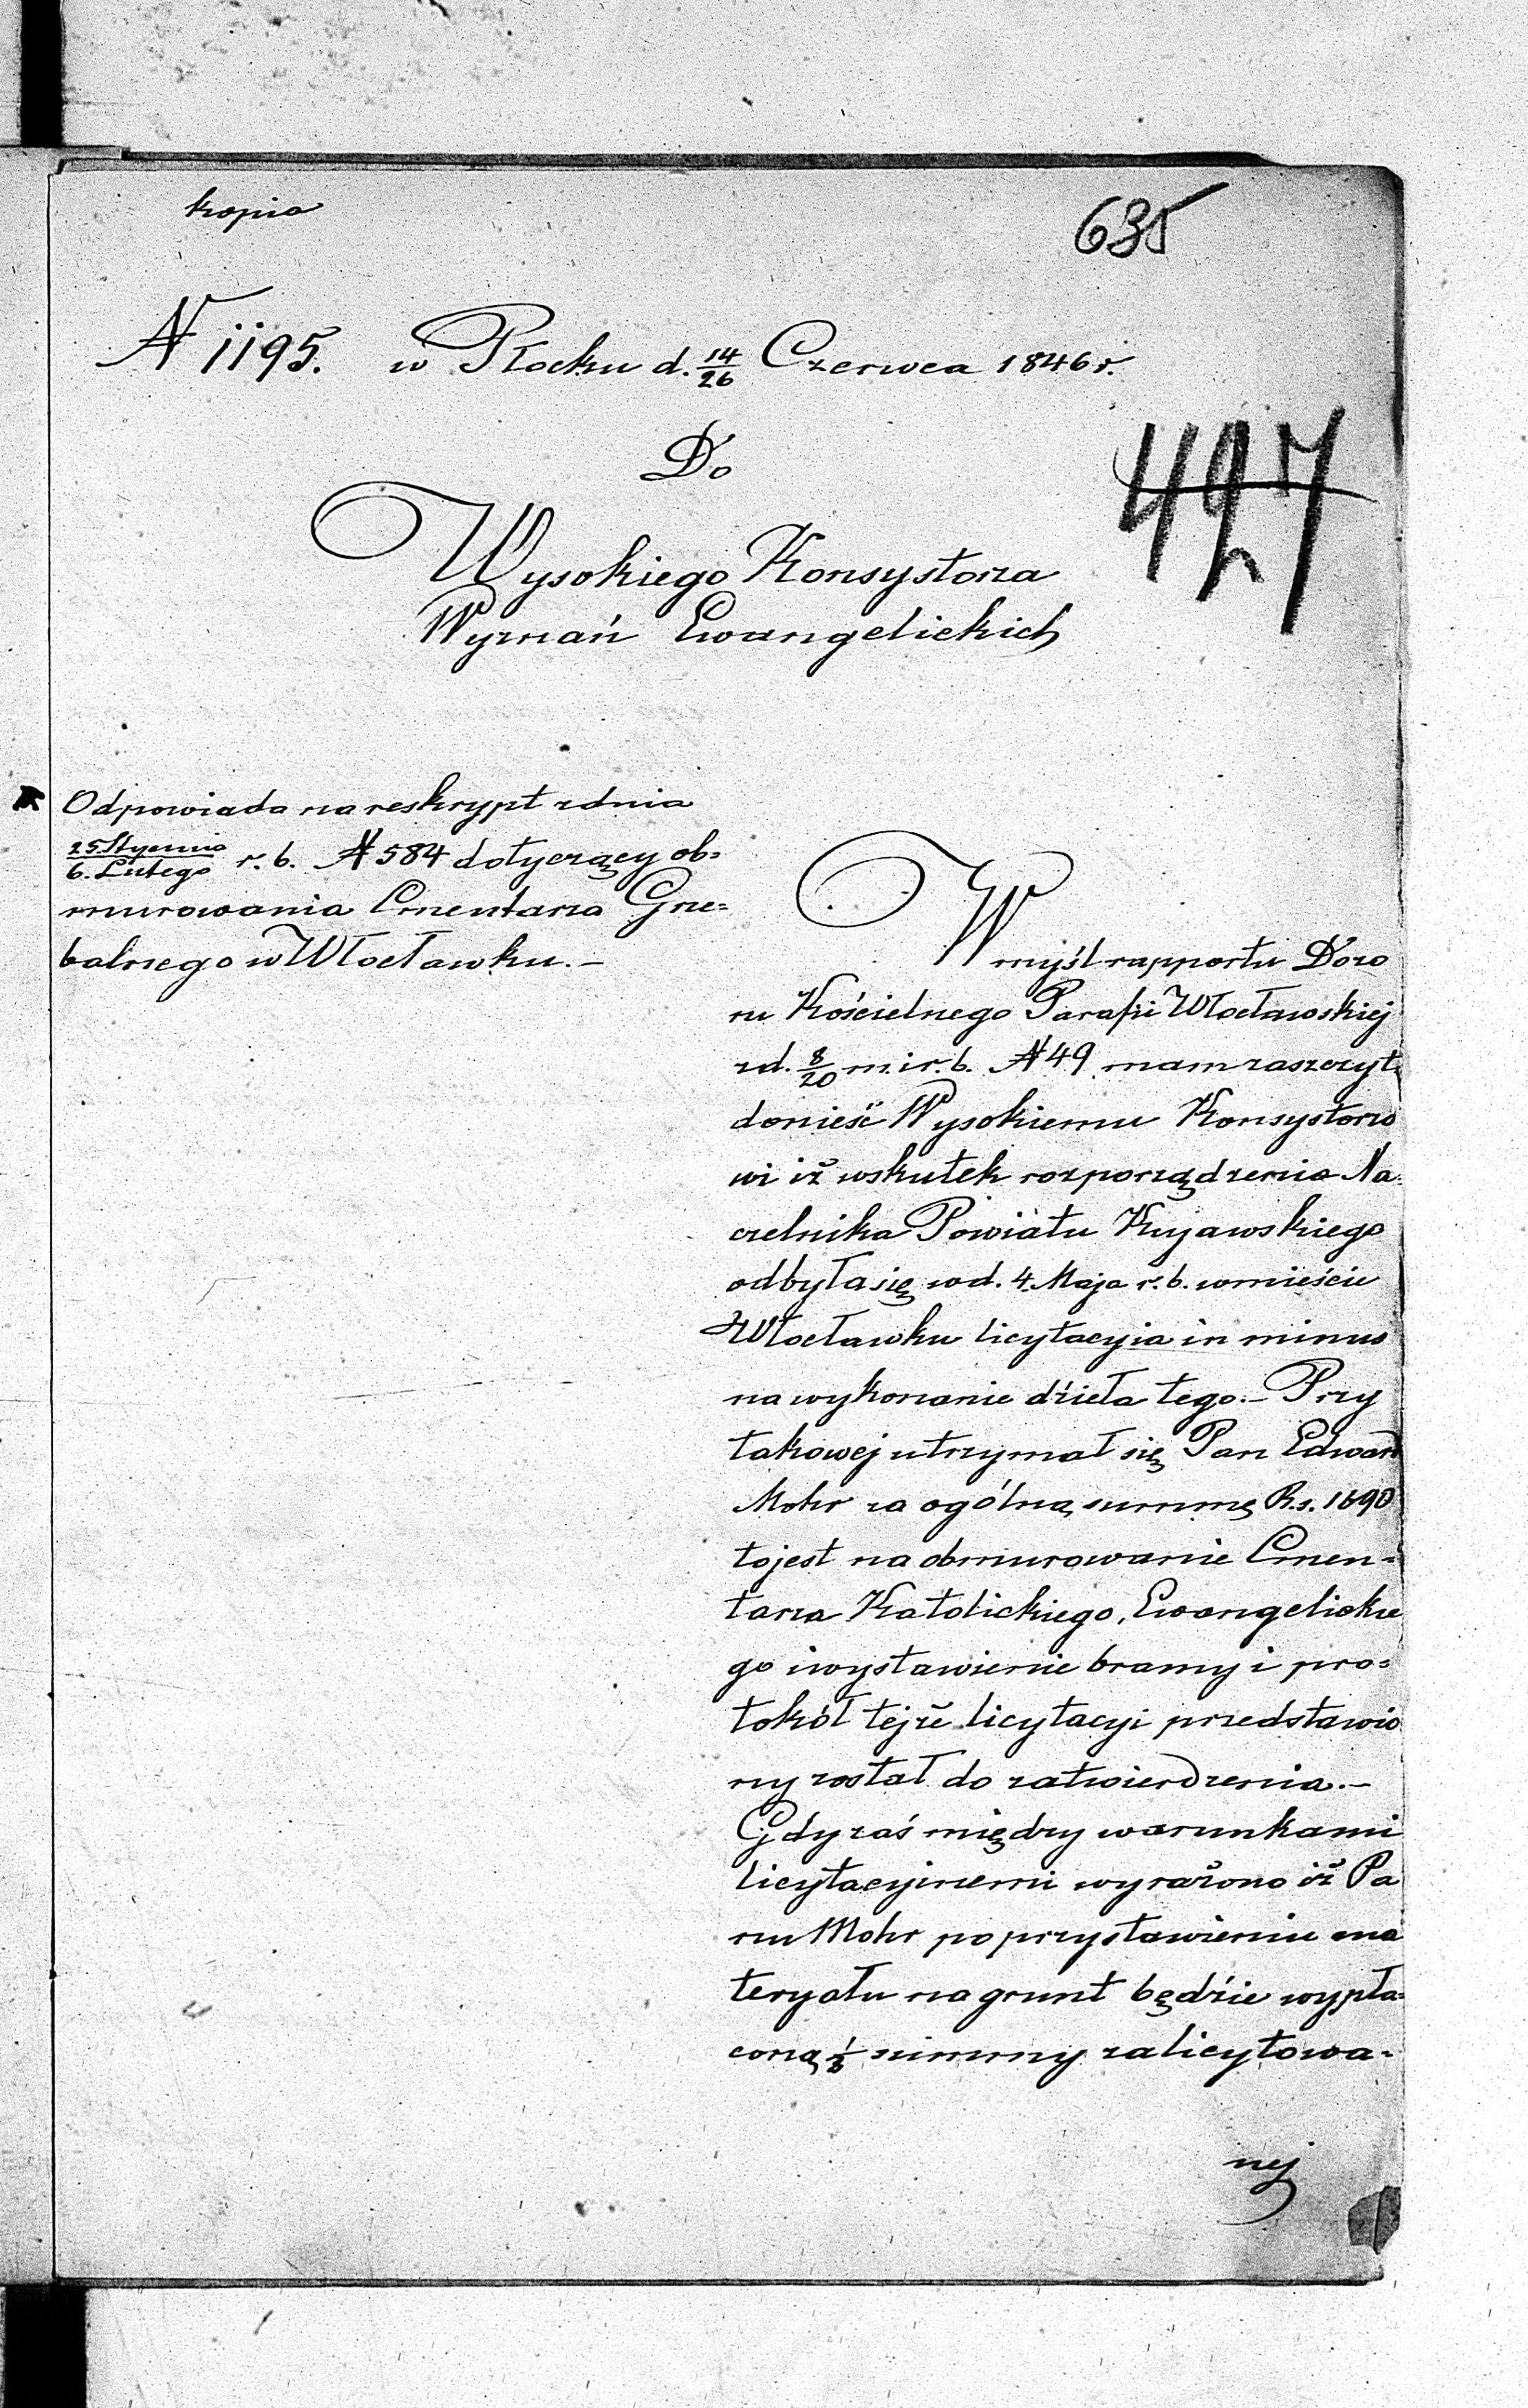 kopia
635
N 1195. w Płocku d. 14/26 Czerwca 1846 r.
Do
427
Wysokiego Konsystorza
Wyznań Ewangelickich
Odpowiada na reskrypt zdnia
25 Stycznia/6. Lutego r. b. N 584 dotyczący ob=
murowania Cmentarza Grze=
balnego w Włocławku. –
W myśl rapportu Dozo
ru Kościelnego Parafii Włocławskiej
zd. 8/20 m. i r. b. N 49 mam zaszczyt
donieść Wysokiemu Konsystorzo
wi iż wskutek rozporządzenia Na=
czelnika Powiatu Kujawskiego
odbyła się wd. 4. Maja r. b. wmieście
Włocławku licytacyia in minus
na wykonanie dzieła tego. – Przy
takowej utrzymał się Pan Edward
Mohr za ogólną summę R.s. 1690
tojest na obmurowanie Cmen=
tarza Katolickiego, Ewangelickie
go i wystawienie bramy i pro=
tokół tejże licytacyi przedstawio
ny został do zatwierdzenia. –
Gdy zaś między warunkami
licytacyjnemi wyrażono iż Pa
nu Mohr po przystawieniu ma
teryału na grunt będzie wypła=
coną summy zalicytowa=
nej